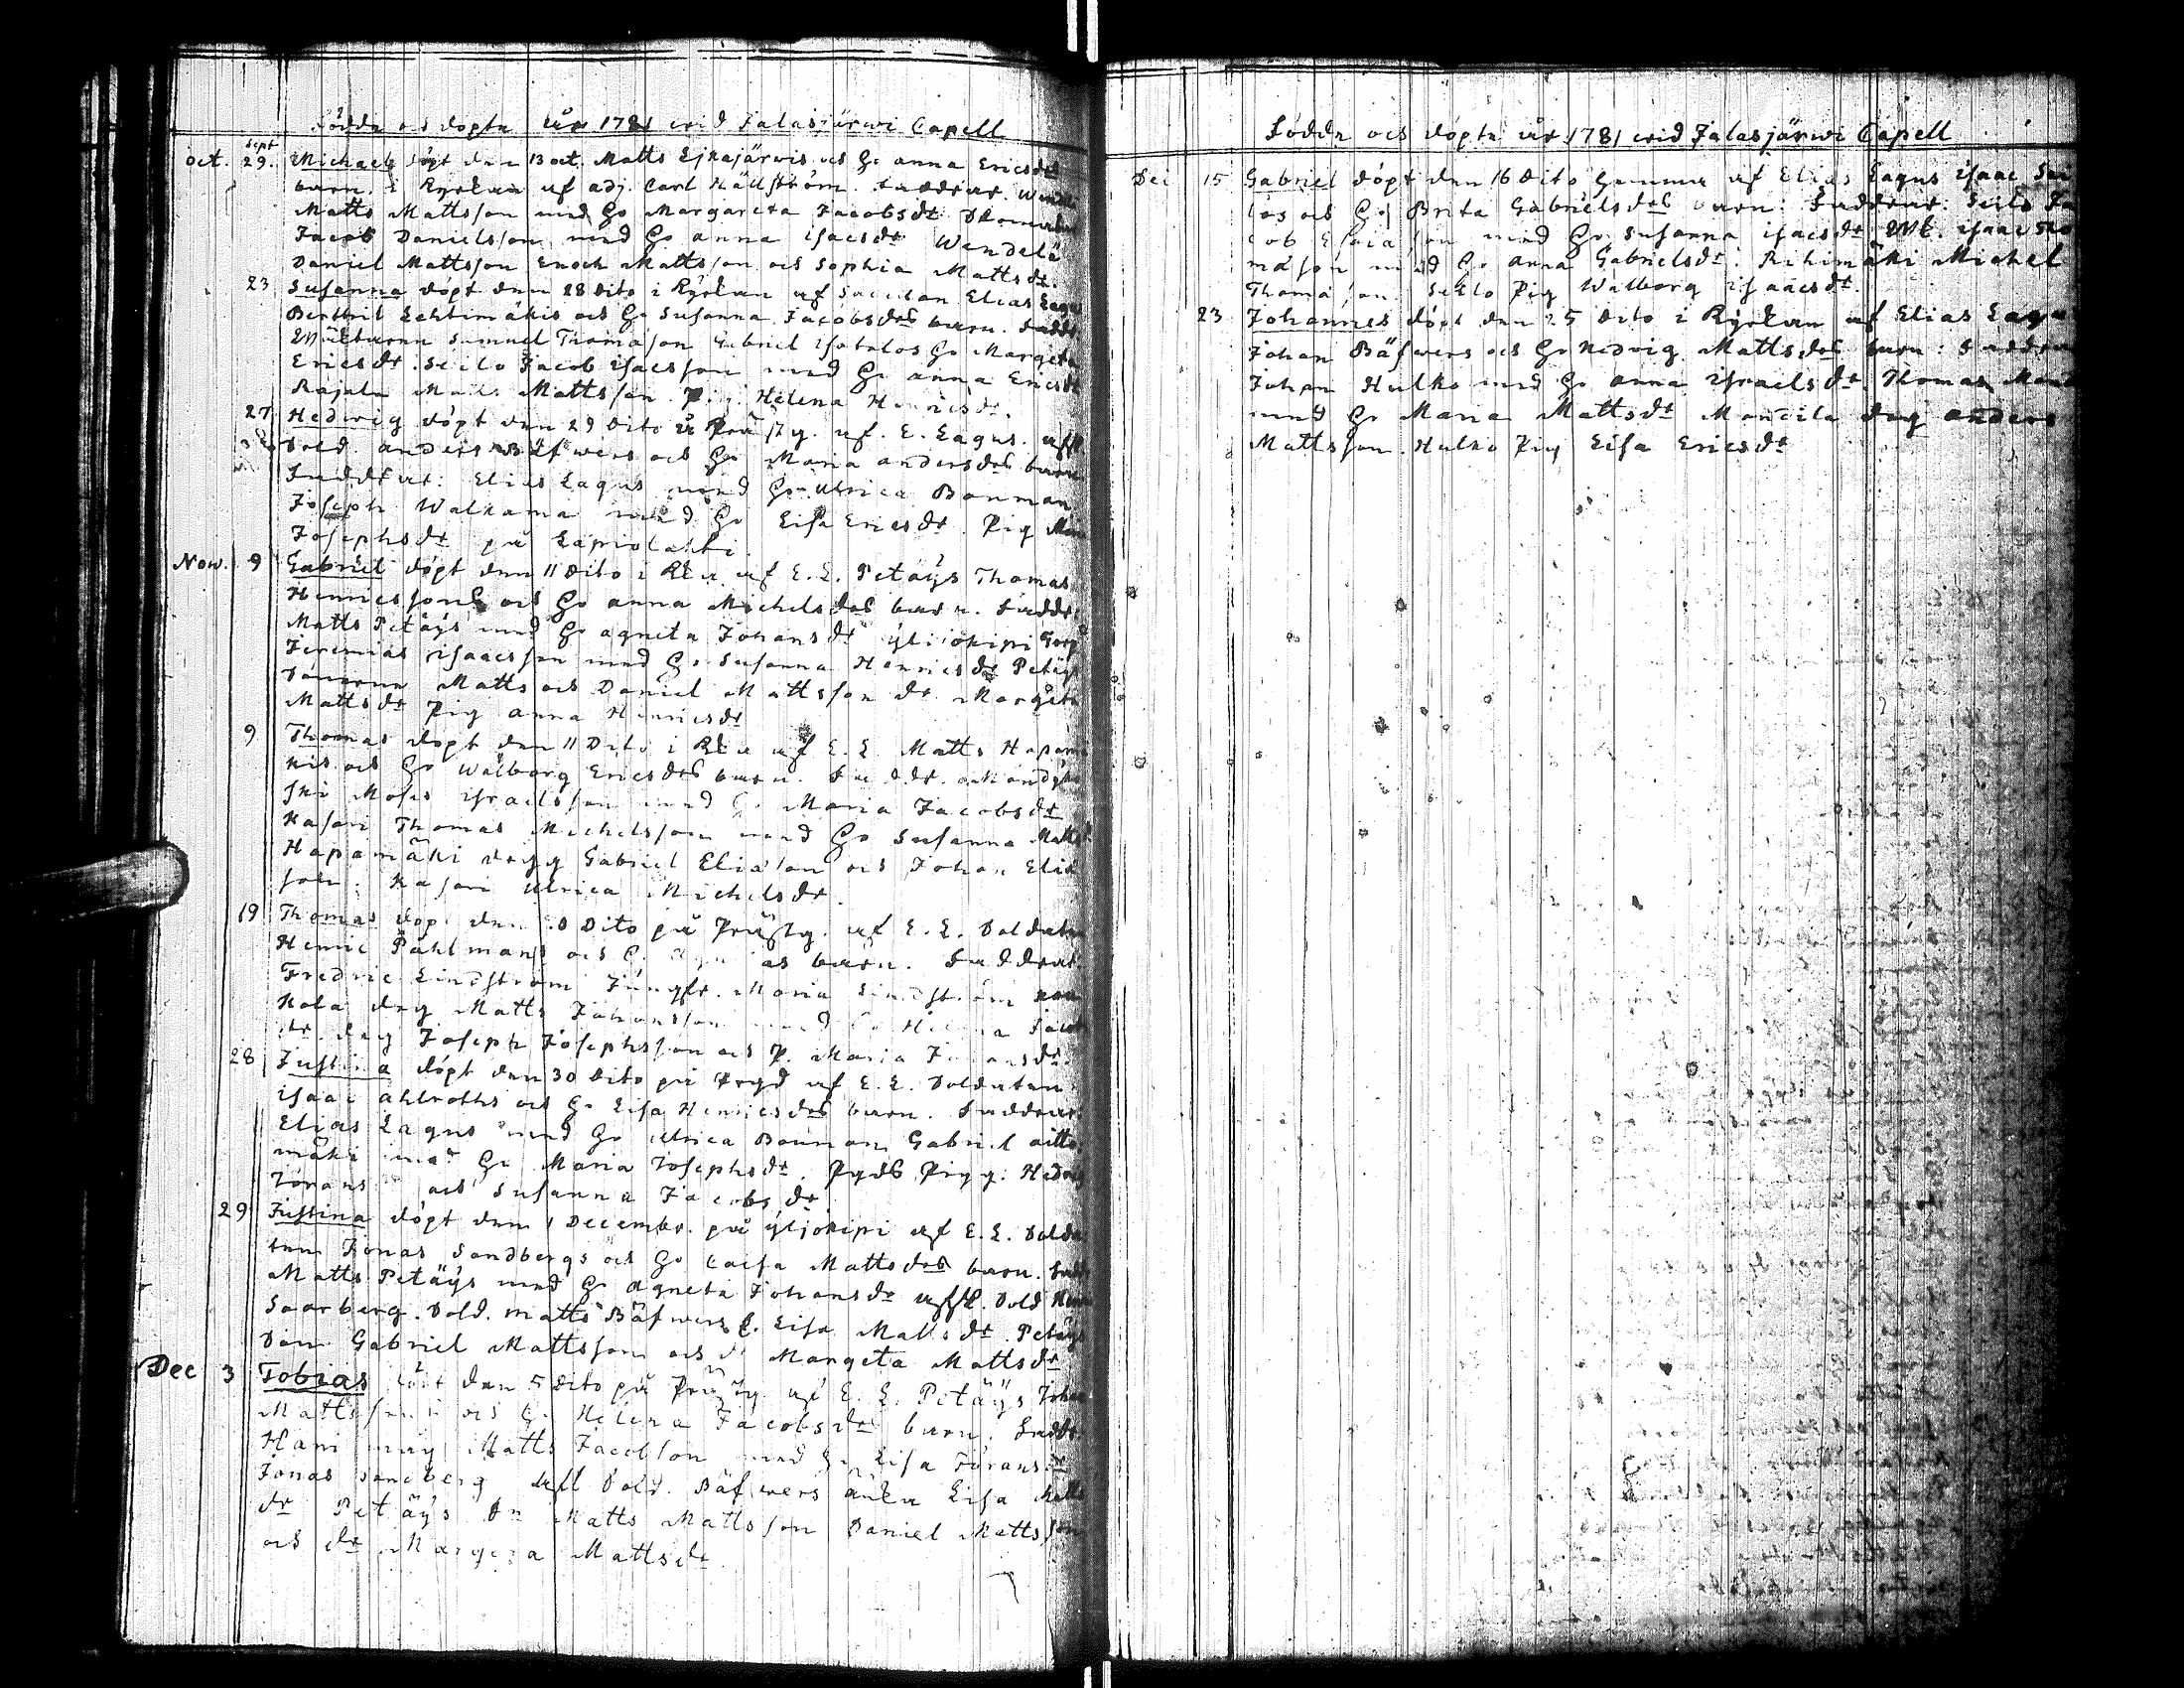 Födde och döpte år 1781 wid Jalasjärwi Capell
oct. sept 29. Michael döpt den 13 oct. Matts Ejkajärwis och Ho anna Ericsdrs
barn. i Kyrkan af adj. Carl Hällström. Faddrar.
Matts Mattsson med Ho Margareta Jacobsdr
Jacob Danielsson med Ho anna isacsdr Wendelä
Daniel Mattsson Enoch Mattsson och Sophia Mattsdr.
23 Susanna döpt den 28 Dito i Kyrkan af Elias Lagus
Berthil Lehtimäkis och Ho Susanna Jacobsdrs barn. Faddr.
Samuel Thomason Gabriel Ho Margeta
Ericsdr. Seilo Jacob isacsson med Ho anna Ericsdr
Rajala Matts Mattsson Pig. Helena Henricsdr.
27 Hedwig döpt den 29 Dito å Prästg. af E. Lagus. affsk.
Sold. anders Bäfwers och Ho Maria andersdrs barn
Faddrar: Elias Lagus med Ho Ulrica Bonman
Joseph Walkama med Ho Lisa Ericsdr Pig
Josephsdr på Lapiolahti.
Now. 9 Gabriel döpt den 11 Dito i Kka af E. L. Petäys Thomas
Henricssons och Ho anna Michelsdrs barn. Faddr.
Matts Petäys med Ho agneta Johansdr ylijokipi
Jeremias isaacsson med Ho Susanna Henricsdr Petäys
Sönerna Matts och Daniel Mattsson dr. Margeta
Mattsdr Pig anna Henricsdr
9 Thomas döpt den 11 Dito i Kka af E. L. Matts Hapamä
kis och Ho Walborg Ericsdrs barn. Faddr.
ski Moses israelsson med Ho Maria Jacobsdr
Kasari Thomas Michelsson med Ho Susanna Matts
Hapamäki drgg Gabriel Eliason och Johan Elia
son. Kasari Ulrica Michelsdr.
19 Thomas döpt den Dito på Prästg. af E. L. Soldaten
Henric Påhlmans och barn. Faddrar.
Fredric Lindström Jungfr. Maria Lindström
kola drg Matts Johansson med Ho Helena Jacobs
dr. drg Joseph Josephsson och P. Maria
28 Justina döpt den 30 Dito på af E. L. Soldaten
isaac ahlroths och Ho Lisa Henricsdrs barn. Faddrar.
Elias Lagus med Ho Ulrica Bonman Gabriel aitto
mäki med Ho Maria Josephsdr. Pigg. Hedwig
och Susanna Jacobsdr
29 Justina döpt den 1 Decembr. på ylijokipi af E. L. Solda
ten Jonas Sandbergs och Ho Caisa Mattsdrs barn.
Matts Petäys med Ho agneta Johansdr affsk. Sold
Saarberg. Sold. Matts Bäfwers Lisa Mattsdr. Petäys
Son Gabriel Mattsson och dr Margeta Mattsdr
Dec 3 Tobias döpt den 5 Dito på Prästg. af E. L. Petäys Johan
Mattssons och Ho Helena Jacobsdrs barn. Faddr.
Matts Jacobson med Ho Lisa Jöransdr
Jonas Sandberg aff Sold. Bäfwers änka Lisa Matts
dr Petäys Matts Mattsson Daniel Mattsson
och dr Margeta Mattsdr.
Födde och döpte år 1781 wid Jalasjärwi Capell
Dec 15 Gabriel döpt den 16 Dito hemma af Elias Lagus isaac Sei
los och Ho Brita Gabrielsdrs barn: Faddrar: Seilo Ja
cob Esaiason med Ho Susanna isacsdr isaac Tho
mason med Ho anna Gabrielsdr. Rihimäki Michel
Thomason Seilo Pig Walborg isaacsdr.
23 Johannes döpt den 25 Dito i Kyrkan af Elias Lagus
Johan Bäfwers och Ho Hedvig Mattsdrs barn: Faddrar
Johan Hulko med Ho anna israelsdr. Thomas
med Ho Maria Mattsdr Mancila drg anders
Mattsson. Hulko Pig Lisa Ericsdr